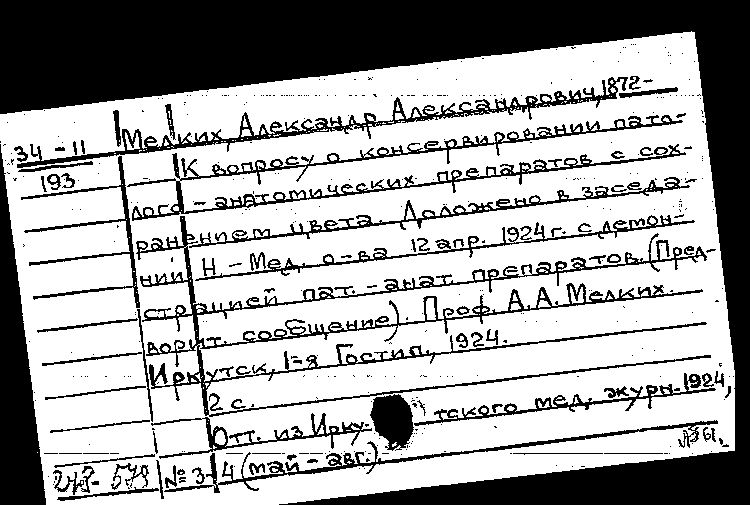 Мелких, Александр Александрович, 1872-
34-11
193
К вопросу о консервировании пато-
лого-анатомических препаратов с сох-
ранением цвета. Доложено в заседа-
нии Н-Мед. о-ва 12 апр. 1924 г. с демон-
страцией пат.-анат. препаратов. (Пред-
ворит. сообщение). Проф. А. А. Мелких.
Иркутск, 1-я Гостип., 1924.
2 с.
Отт. из Ирку тского мед. журн. 1924,
№ 3-4 (май-авг.).